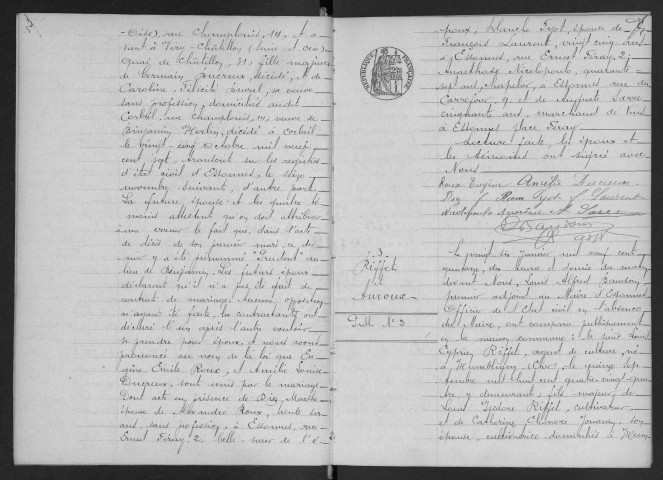 -Oise), rue Champlouis, 14, et a-
vant à Viry-Châtillon (Seine et Oise)
Quai de Châtillon, 31, fille majeure
de Germain Ducreux, décédé, et de
Caroline Félicité Duval, sa veuve
sans profession, domiciliée audit
Corbeil, rue Champlouis, 14, veuve de
Benjamin Herbin, décédé à Corbeil
le vingt-cinq octobre mil neuf
cent sept, transcrit sur les registres
d'état civil d'Essonnes, le seize
novembre suivant, d'autre part.
La future épouse et les quatre té-
moins attestent qu'on doit attribuer
à une erreur le fait que, dans l'acte
de décès de son premier mari, ce der-
nier y a été prénommé "Prudent" au
lieu de Benjamin. Les futurs époux
déclarent qu'il n'a pas été fait de
contrat de mariage. Aucune opposition
n'ayant été faite, les contractants ont
déclaré l'un après l'autre vouloir
se prendre pour époux, et nous avons
prononcé au nom de la loi que Eu-
gène Emile Roux, et Amélie Louise
Ducreux, sont unis par le mariage
Dont acte en présence de
épouse de Alexandre Roux, trente six
ans, sans profession, à Essonnes, rue
Ernest Féray, 2, belle-sœur de l'é-
poux; Blanche Fyot, épouse de
François Laurent, vingt cinq ans
à Essonnes, rue Ernest Féray, 2;
Anasthase Nicolopoulo, quarante
sept ans, chapelier, à Essonnes rue du
Carrefour, 9 et de Auguste
cinquante ans, marchand de vins
à Essonnes place Féray.
Lecture faite, les époux et
les témoins ont signé avec
Nous.
Roux Eugène Amélie Ducreux
Roux Fyot Laurent
RÉPUBLIQUE FRANÇAISE
3
Riffet
et
Auroux
Publ. N° 3
Le vingt six janvier mil neuf cent
quatorze, dix heures et demie du matin
devant Nous, Louis Alfred Baudouin
premier adjoint au Maire d'Essonnes
Officier de l'Etat civil en l'absence
du Maire, ont comparu publiquement
en la maison commune: le sieur Louis
Cyprien Riffet, agent de culture, né
à Humbligny (Cher), le quinze sep-
tembre mil huit cent quatre vingt quatre
, y demeurant; fils majeur de
Louis Isidore Riffet, cultivateur
et de Catherine Eléonore Jouanin, son
épouse, cultivatrice, domiciliés à Hum-